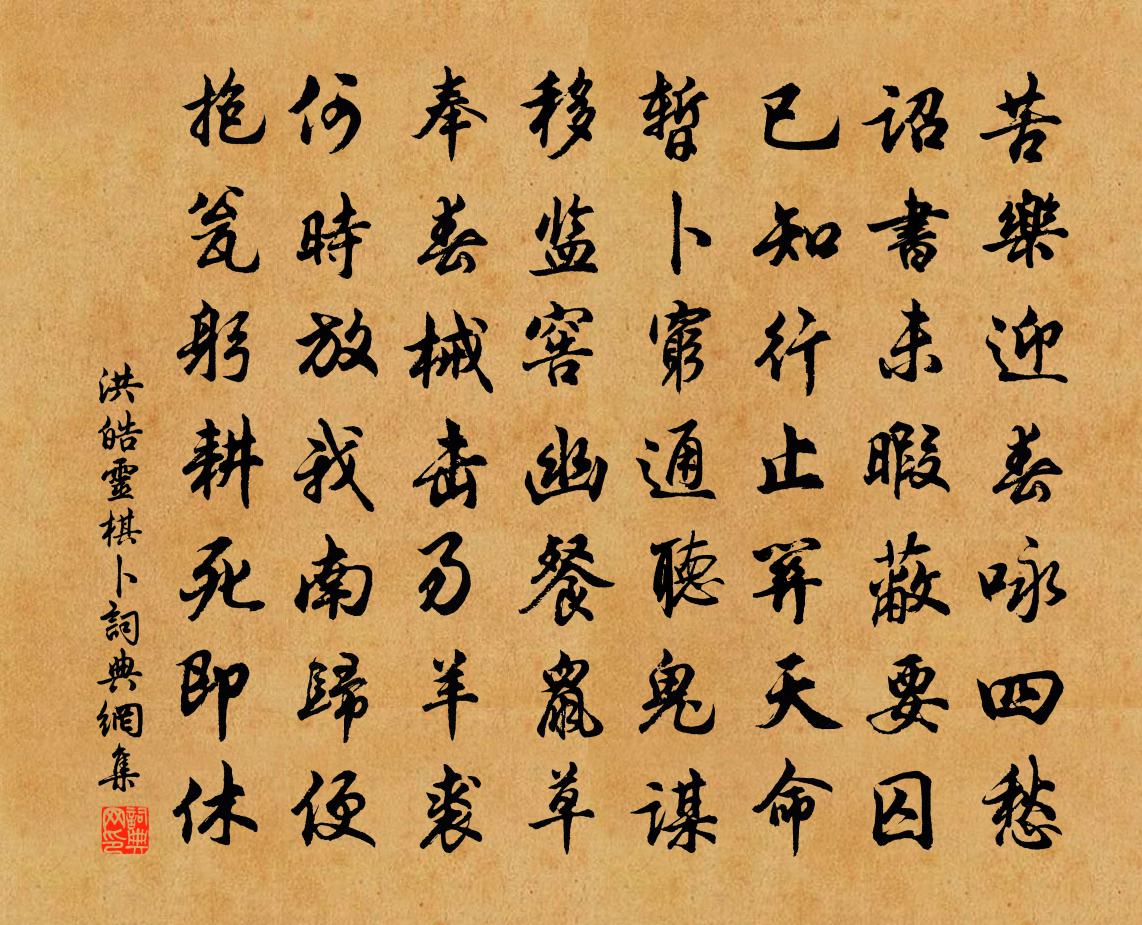 苦樂迎春咏四愁
詔書未暇蔽要囚
已知行止關天命
暫卜窮通聽鬼謀
移监窖幽餐鼠草
奉春械击易羊裘
何時放我南歸便
抱瓮躬耕死即休
洪皓靈棋卜詞典網集
詞典网印